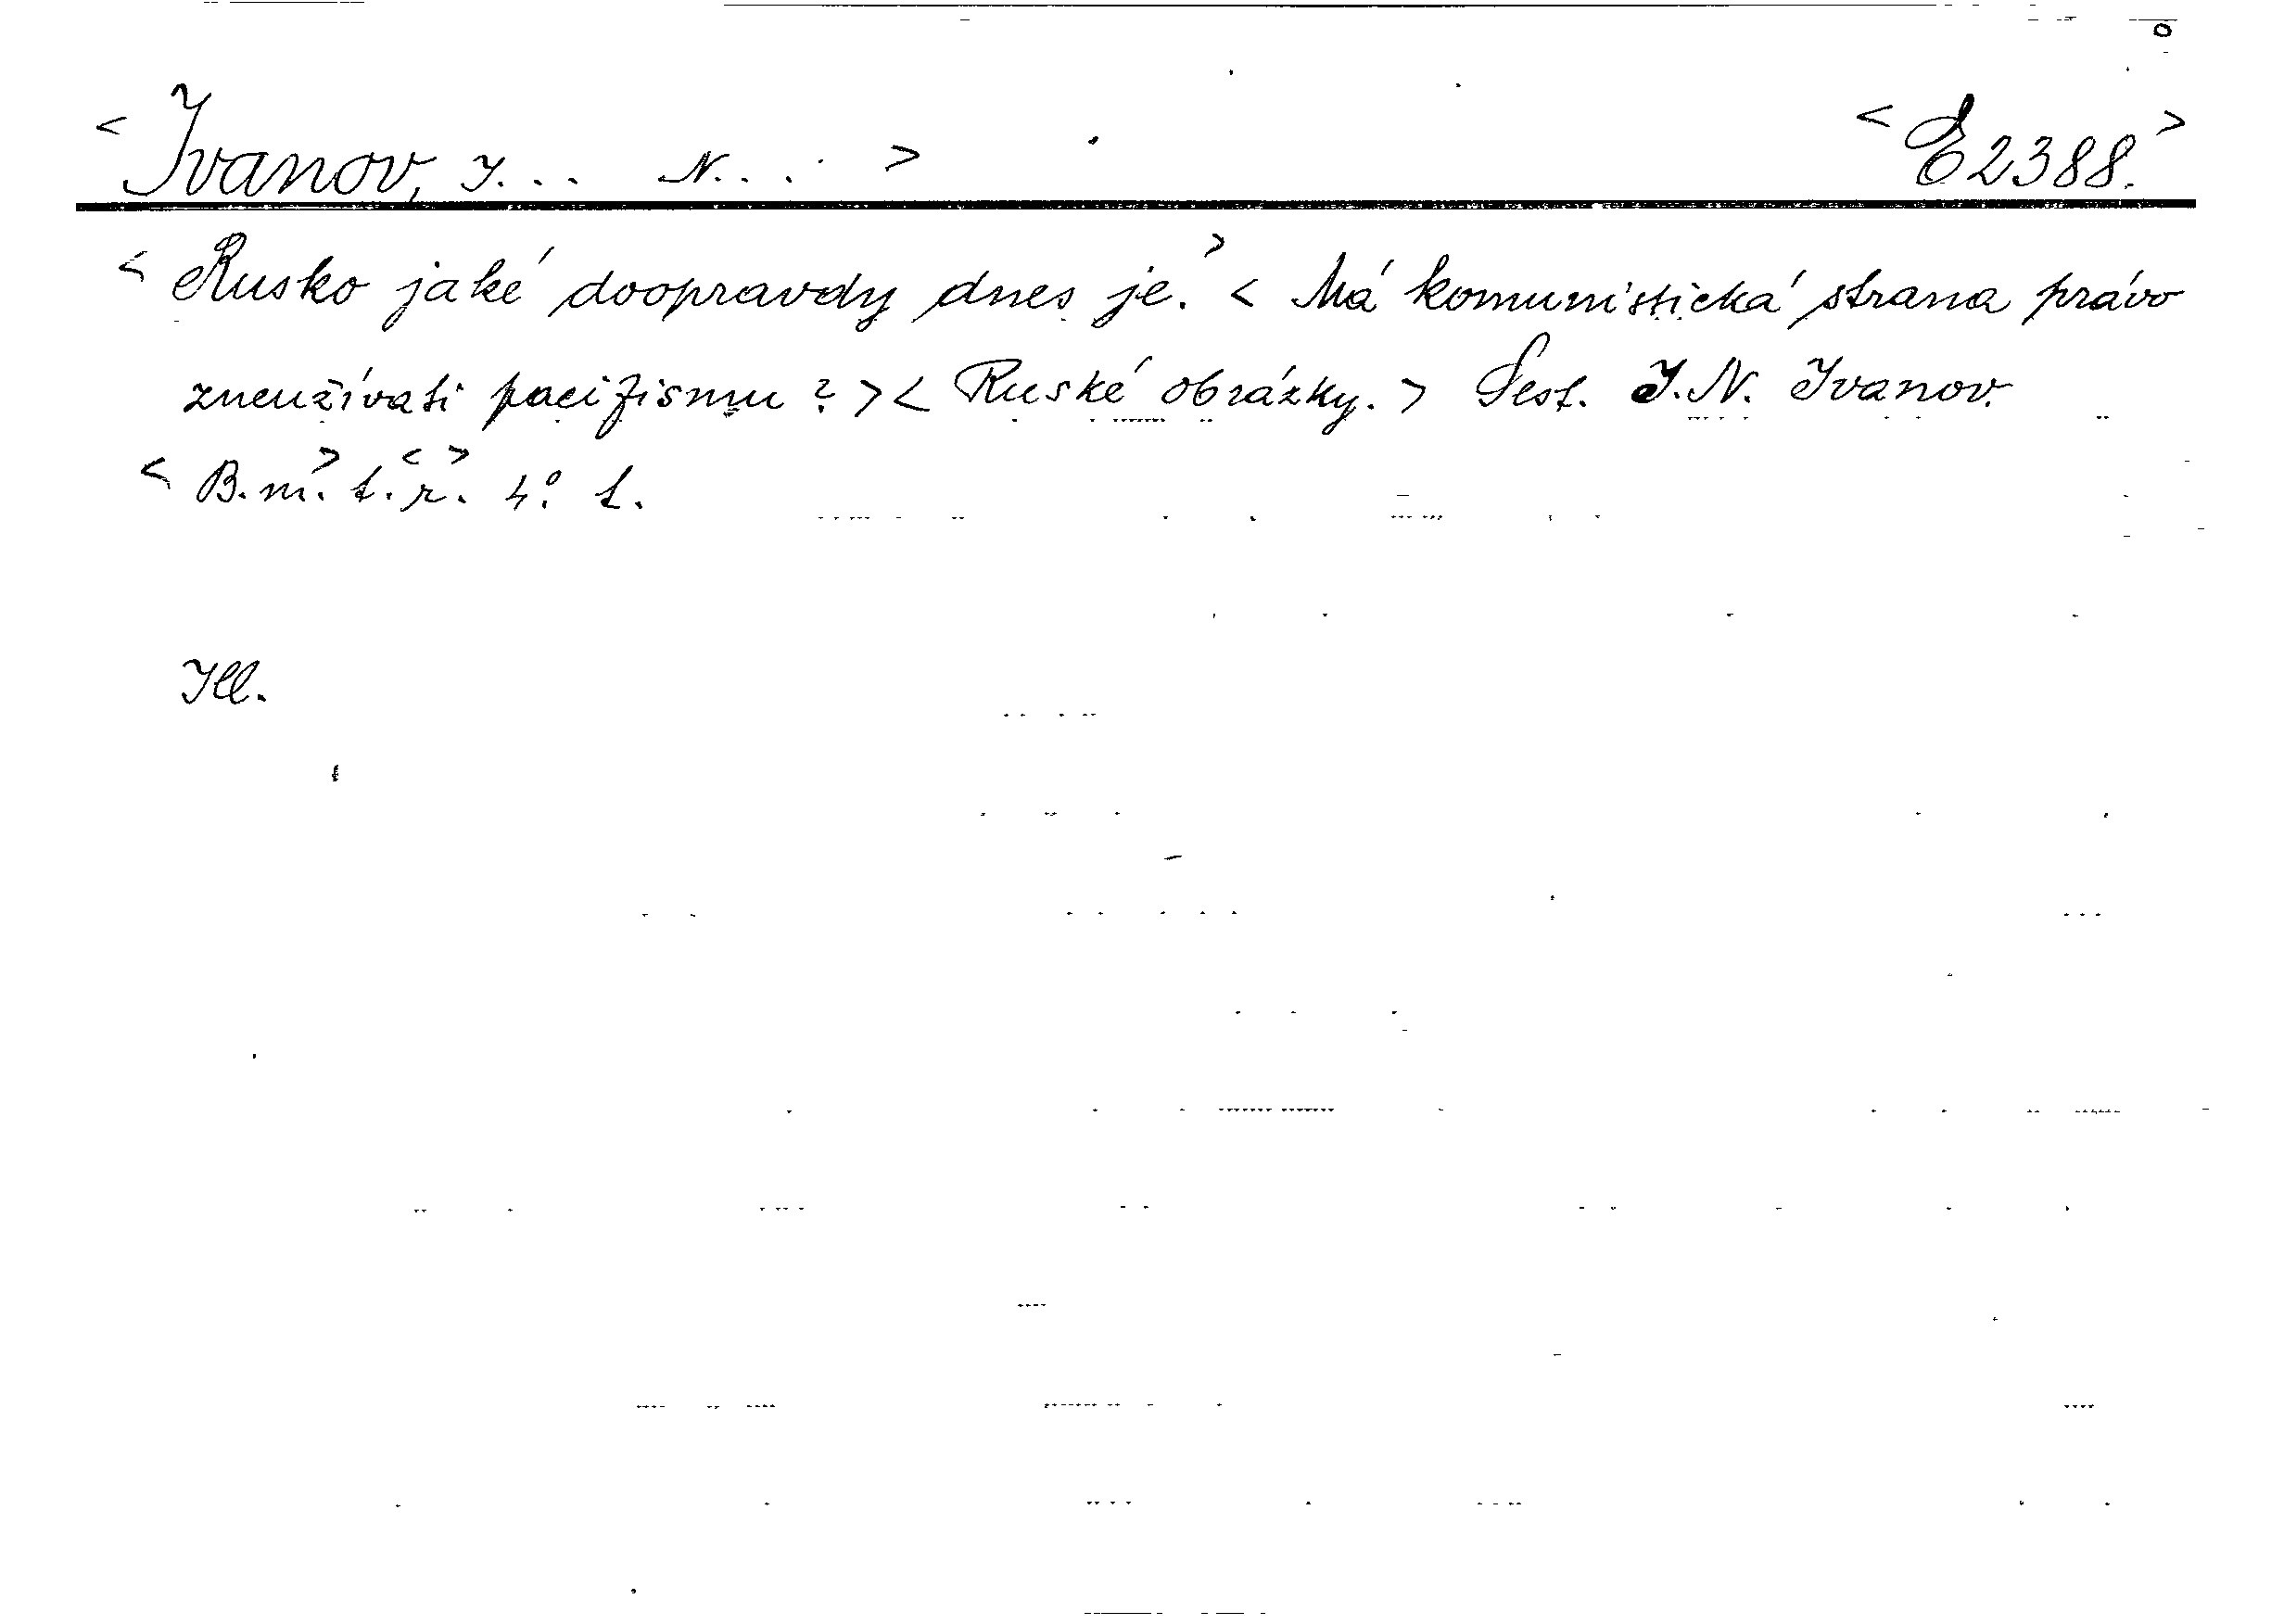 < Ivanov, I... N... > < E2388. >
< Rusko jaké doopravdy dnes je. > < Má komunistická strana právo
zneužívati pacifismu? > < Ruské obrázky. > Sest. I. N. Ivanov.
< B. m. > t. < r. > 4° 1.
Ill.